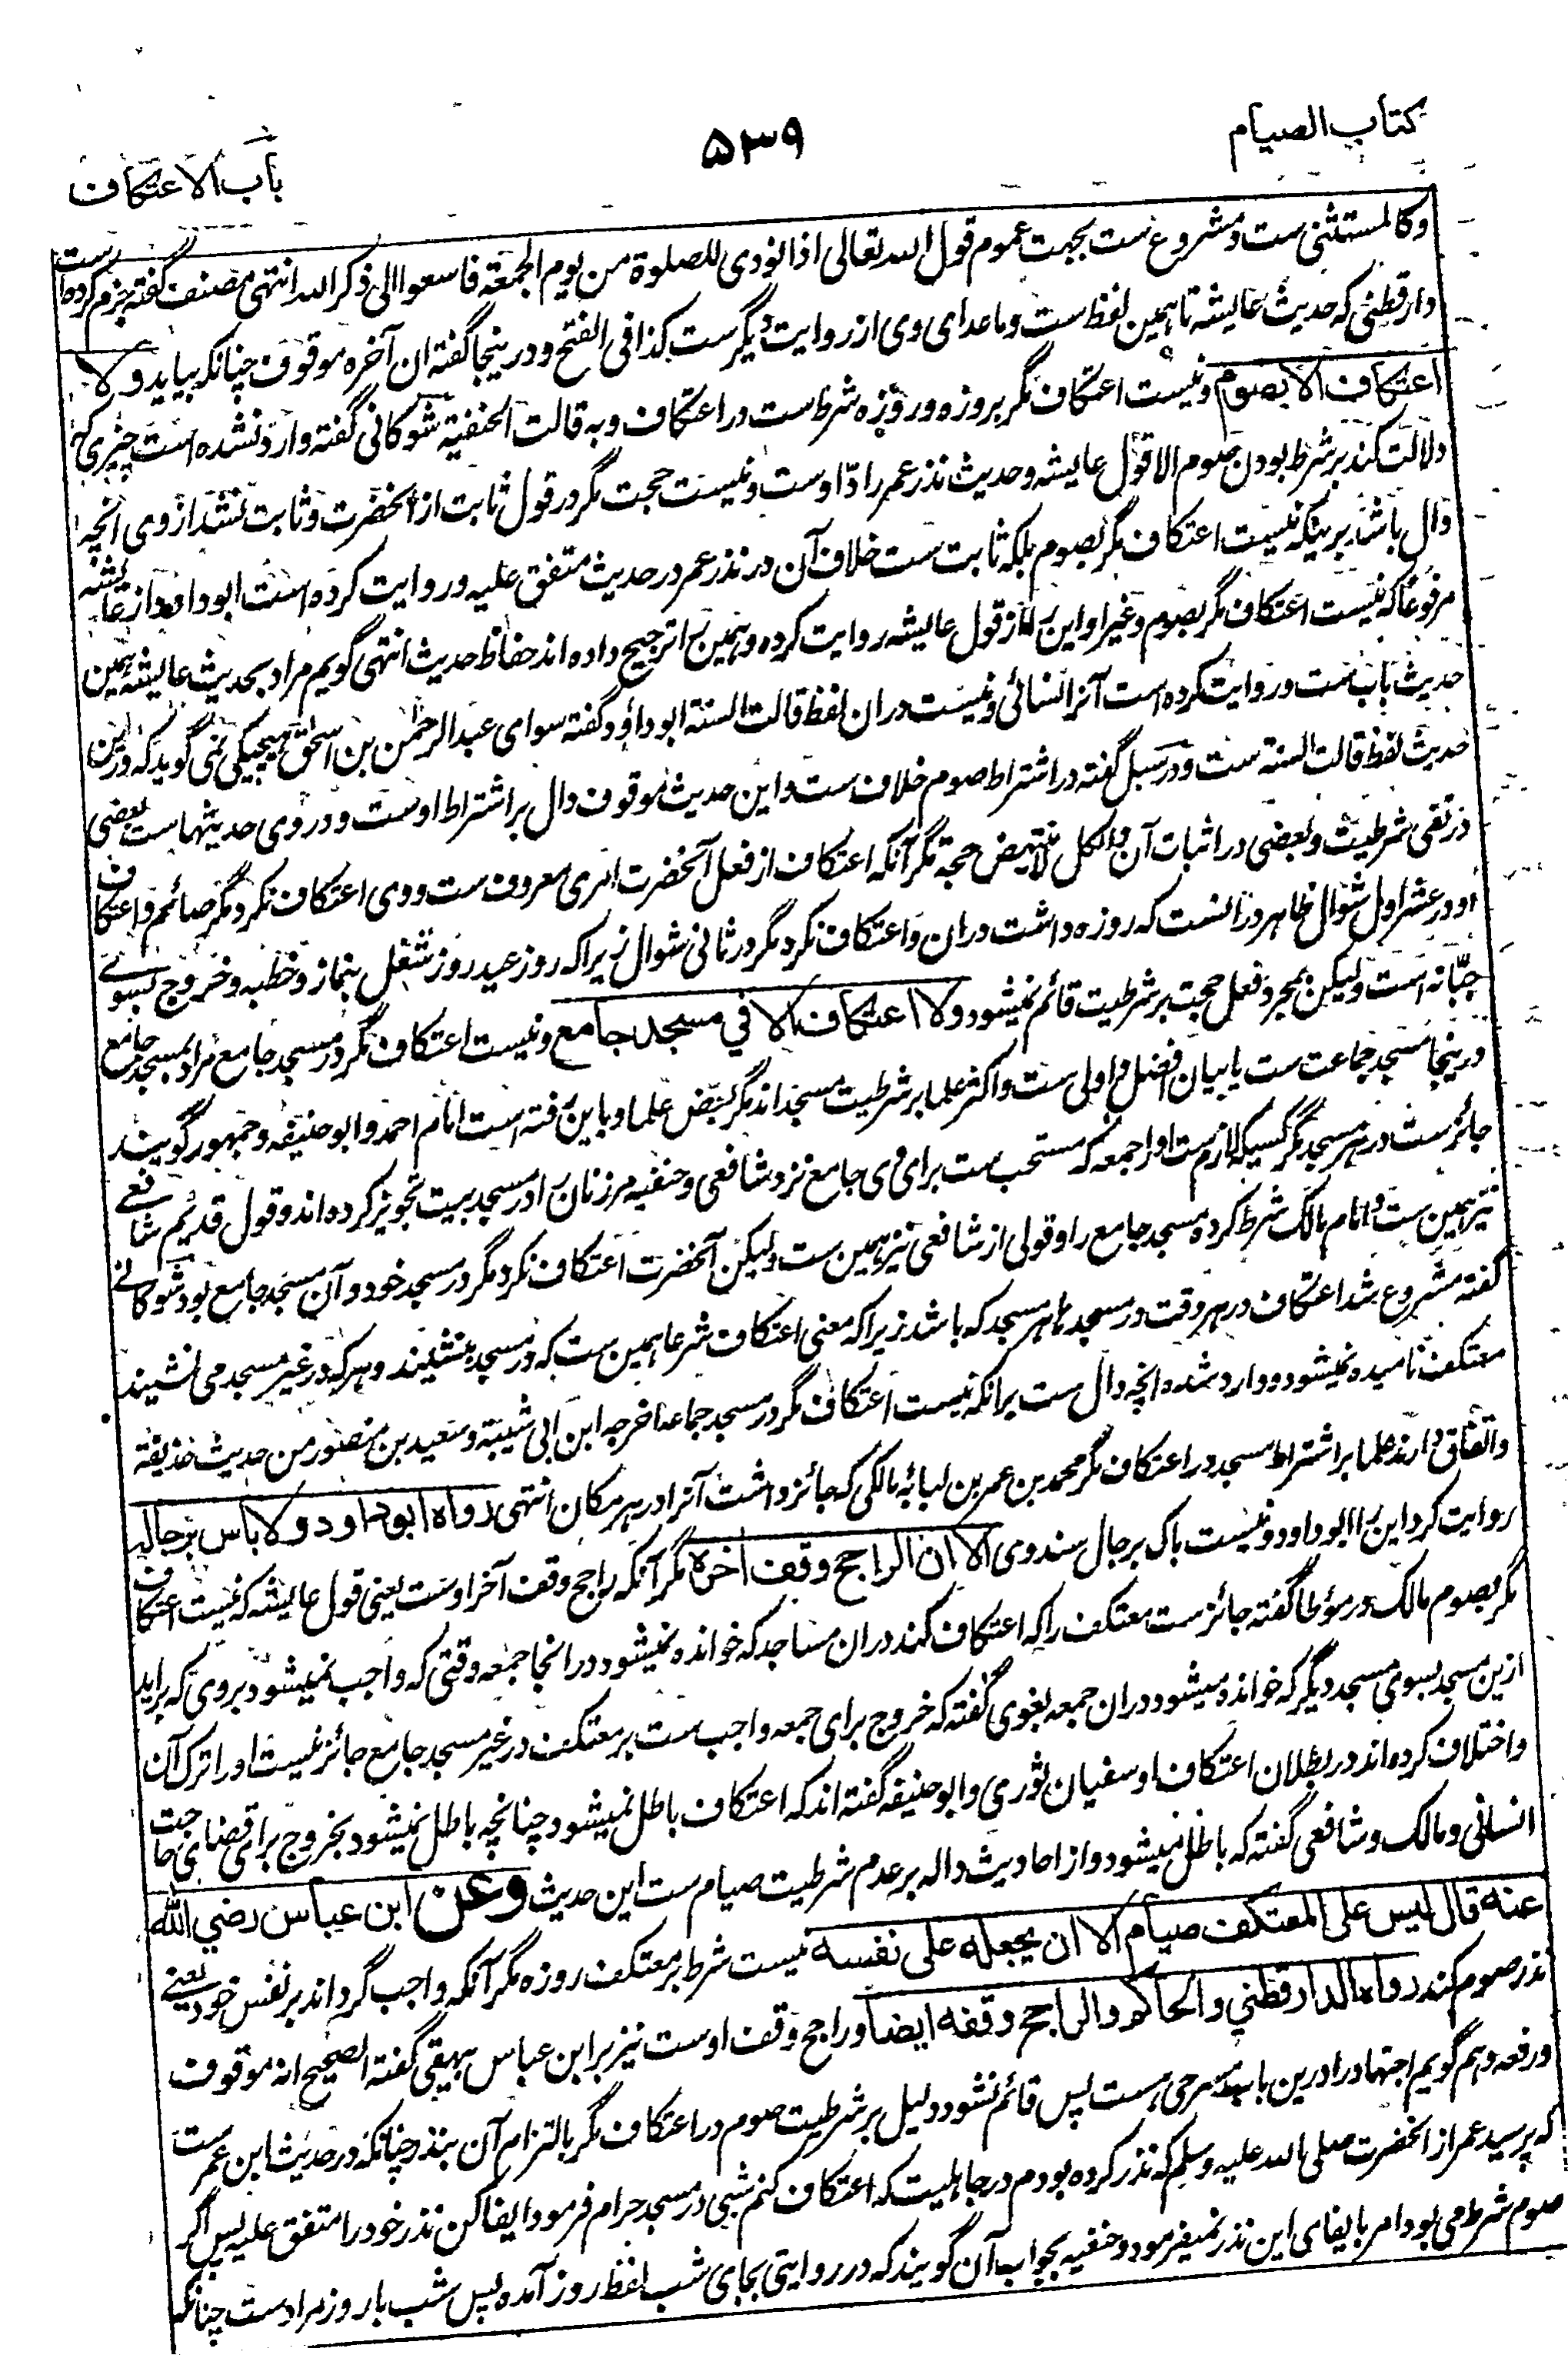 كتاب الصيام
۵۳۹
باب الاعتكاف
وكالمستثنى ست ومشروع ست بجهت عموم قول الله تعالى اذا نودى للصلوة من يوم الجمعة فاسعوا الى ذكر الله انتهى مصنف گفته جزم كرده است
دارقطنى كه حديث عايشه تا همين لفظ ست وماعداى وى از روايت ديگرست كذا فى الفتح ودرينجا گفته ان آخره موقوف چنانكه بيايد ولا
اعتكاف الا بصوم ونيست اعتكاف مگر بروزه وروزه شرط ست در اعتكاف وبه قالت الحنفية شوكانى گفته وارد نشده است چيزى كه
دلالت كند بر شرط بودن صوم الا قول عايشه وحديث نذر عمر رادّ اوست ونيست حجت مگر در قول ثابت از آنحضرت وثابت نشد از وى آنچه
دال باشد برينكه نيست اعتكاف مگر بصوم بلكه ثابت ست خلاف آن در نذر عمر در حديث متفق عليه وروايت كرده است ابوداود از عايشه
مرفوعا كه نيست اعتكاف مگر بصوم وغير او اين را از قول عايشه روايت كرده وهمين را ترجيح داده اند حفاظ حديث انتهى گويم مراد بحديث عايشه همين
حديث باب ست وروايت كرده است آنرا نسائى ونيست دران لفظ قالت السنة ابوداؤد گفته سواى عبدالرحمٰن بن اسحٰق هيچيكى نمى گويد كه درين
حديث لفظ قالت السنة ست ودر سبل گفته در اشتراط صوم خلاف ست واين حديث موقوف دال بر اشتراط اوست ودر وى حديثهاست بعضى
در نفى شرطيت وبعضى در اثبات آن والكل لا ينتهض حجة مگر آنكه اعتكاف از فعل آنحضرت امرى معروف ست ووى اعتكاف نكرد مگر صائم واعتكاف
او در عشر اول شوال ظاهر در آنست كه روزه داشت دران واعتكاف نكرد مگر در ثانى شوال زيراكه روز عيد روز شغل بنماز وخطبه وخروج بسوے
جبّانه است وليكن بمجرد فعل حجت بر شرطيت قائم نميشود ولا اعتكاف الا في مسجد جامع ونيست اعتكاف مگر در مسجد جامع مراد بمسجد جامع
درينجا مسجد جماعت ست يا بيان افضل واولى ست واكثر علما بر شرطيت مسجد اند مگر بعض علما وباين رفته است امام احمد وابوحنيفه وجمهور گويند
جائزست در هر مسجد مگر كسيكه لازم ست او را جمعه كه مستحب ست براى وى جامع نزد شافعى وحنفيه مر زنان را در مسجد بيت تجويز كرده اند وقول قديم شافعے
نيز همين ست وامام مالك شرط كرده مسجد جامع را وقولى از شافعى نيز همين ست وليكن آنحضرت اعتكاف نكرد مگر در مسجد خود وآن مسجد جامع بود شوكانے
گفته مشروع شد اعتكاف در هر وقت در مسجد ما هر مسجد كه باشد زيراكه معنى اعتكاف شرعا همين ست كه در مسجد بنشينند وهركه در غير مسجد مى نشيند
معتكف ناميده نميشود ووارد شده آنچه دال ست برانكه نيست اعتكاف مگر در مسجد جماعة اخرجه ابن ابى شيبة وسعيد بن منصور من حديث حذيفة
واتفاق دارند علما بر اشتراط مسجد در اعتكاف مگر محمد بن عمر بن لبابه مالكى كه جائز داشت آنرا در هر مكان انتهى رواه ابوداود ولا باس برجاله
روايت كرد اين را ابوداود ونيست باك برجال سند وى الا ان الراجح وقف آخره مگر آنكه راجح وقف آخر اوست يعنى قول عايشه كه نيست اعتكاف
مگر بصوم مالك در مؤطا گفته جائزست معتكف را كه اعتكاف كند دران مساجد كه خوانده نميشود در انجا جمعه وقتى كه واجب نميشود بروى كه برايد
ازين مسجد بسوى مسجد ديگر كه خوانده ميشود دران جمعه بغوى گفته كه خروج براى جمعه واجب ست بر معتكف در غير مسجد جامع جائز نيست او را ترك آن
واختلاف كرده اند در بطلان اعتكاف او سفيان ثورى وابوحنيفه گفته اند كه اعتكاف باطل نميشود چنانچه باطل نميشود بخروج براى قضاى حاجت
انسانى ومالك وشافعى گفته كه باطل نميشود واز احاديث داله بر عدم شرطيت صيام ست اين حديث وعن ابن عباس رضي الله
عنه قال ليس على المعتكف صيام الا ان يجعله على نفسه نيست شرط بر معتكف روزه مگر آنكه واجب گرداند بر نفس خود يعنے
نذر صوم كند رواه الدارقطني والحاكم والراجح وقفه ايضا وراجح وقف اوست نيز بر ابن عباس بيهقى گفته الصحيح انه موقوف
ورفعه وهم گويم اجتهاد را درين باب مسرحى هست پس قائم نشود دليل بر شرطيت صوم در اعتكاف مگر بالتزام آن بنذر چنانكه در حديث ابن عمر ست
كه پرسيد عمر از آنحضرت صلى الله عليه وسلم كه نذر كرده بودم در جاهليت كه اعتكاف كنم شبى در مسجد حرام فرمود ايفا كن نذر خود را متفق عليه پس اگر
صوم شرط مى بود امر بايفاى اين نذر نميفرمود وحنفيه بجواب آن گويند كه در روايتى بجاى شب لفظ روز آمده پس شب با روز مرادست چنانكه